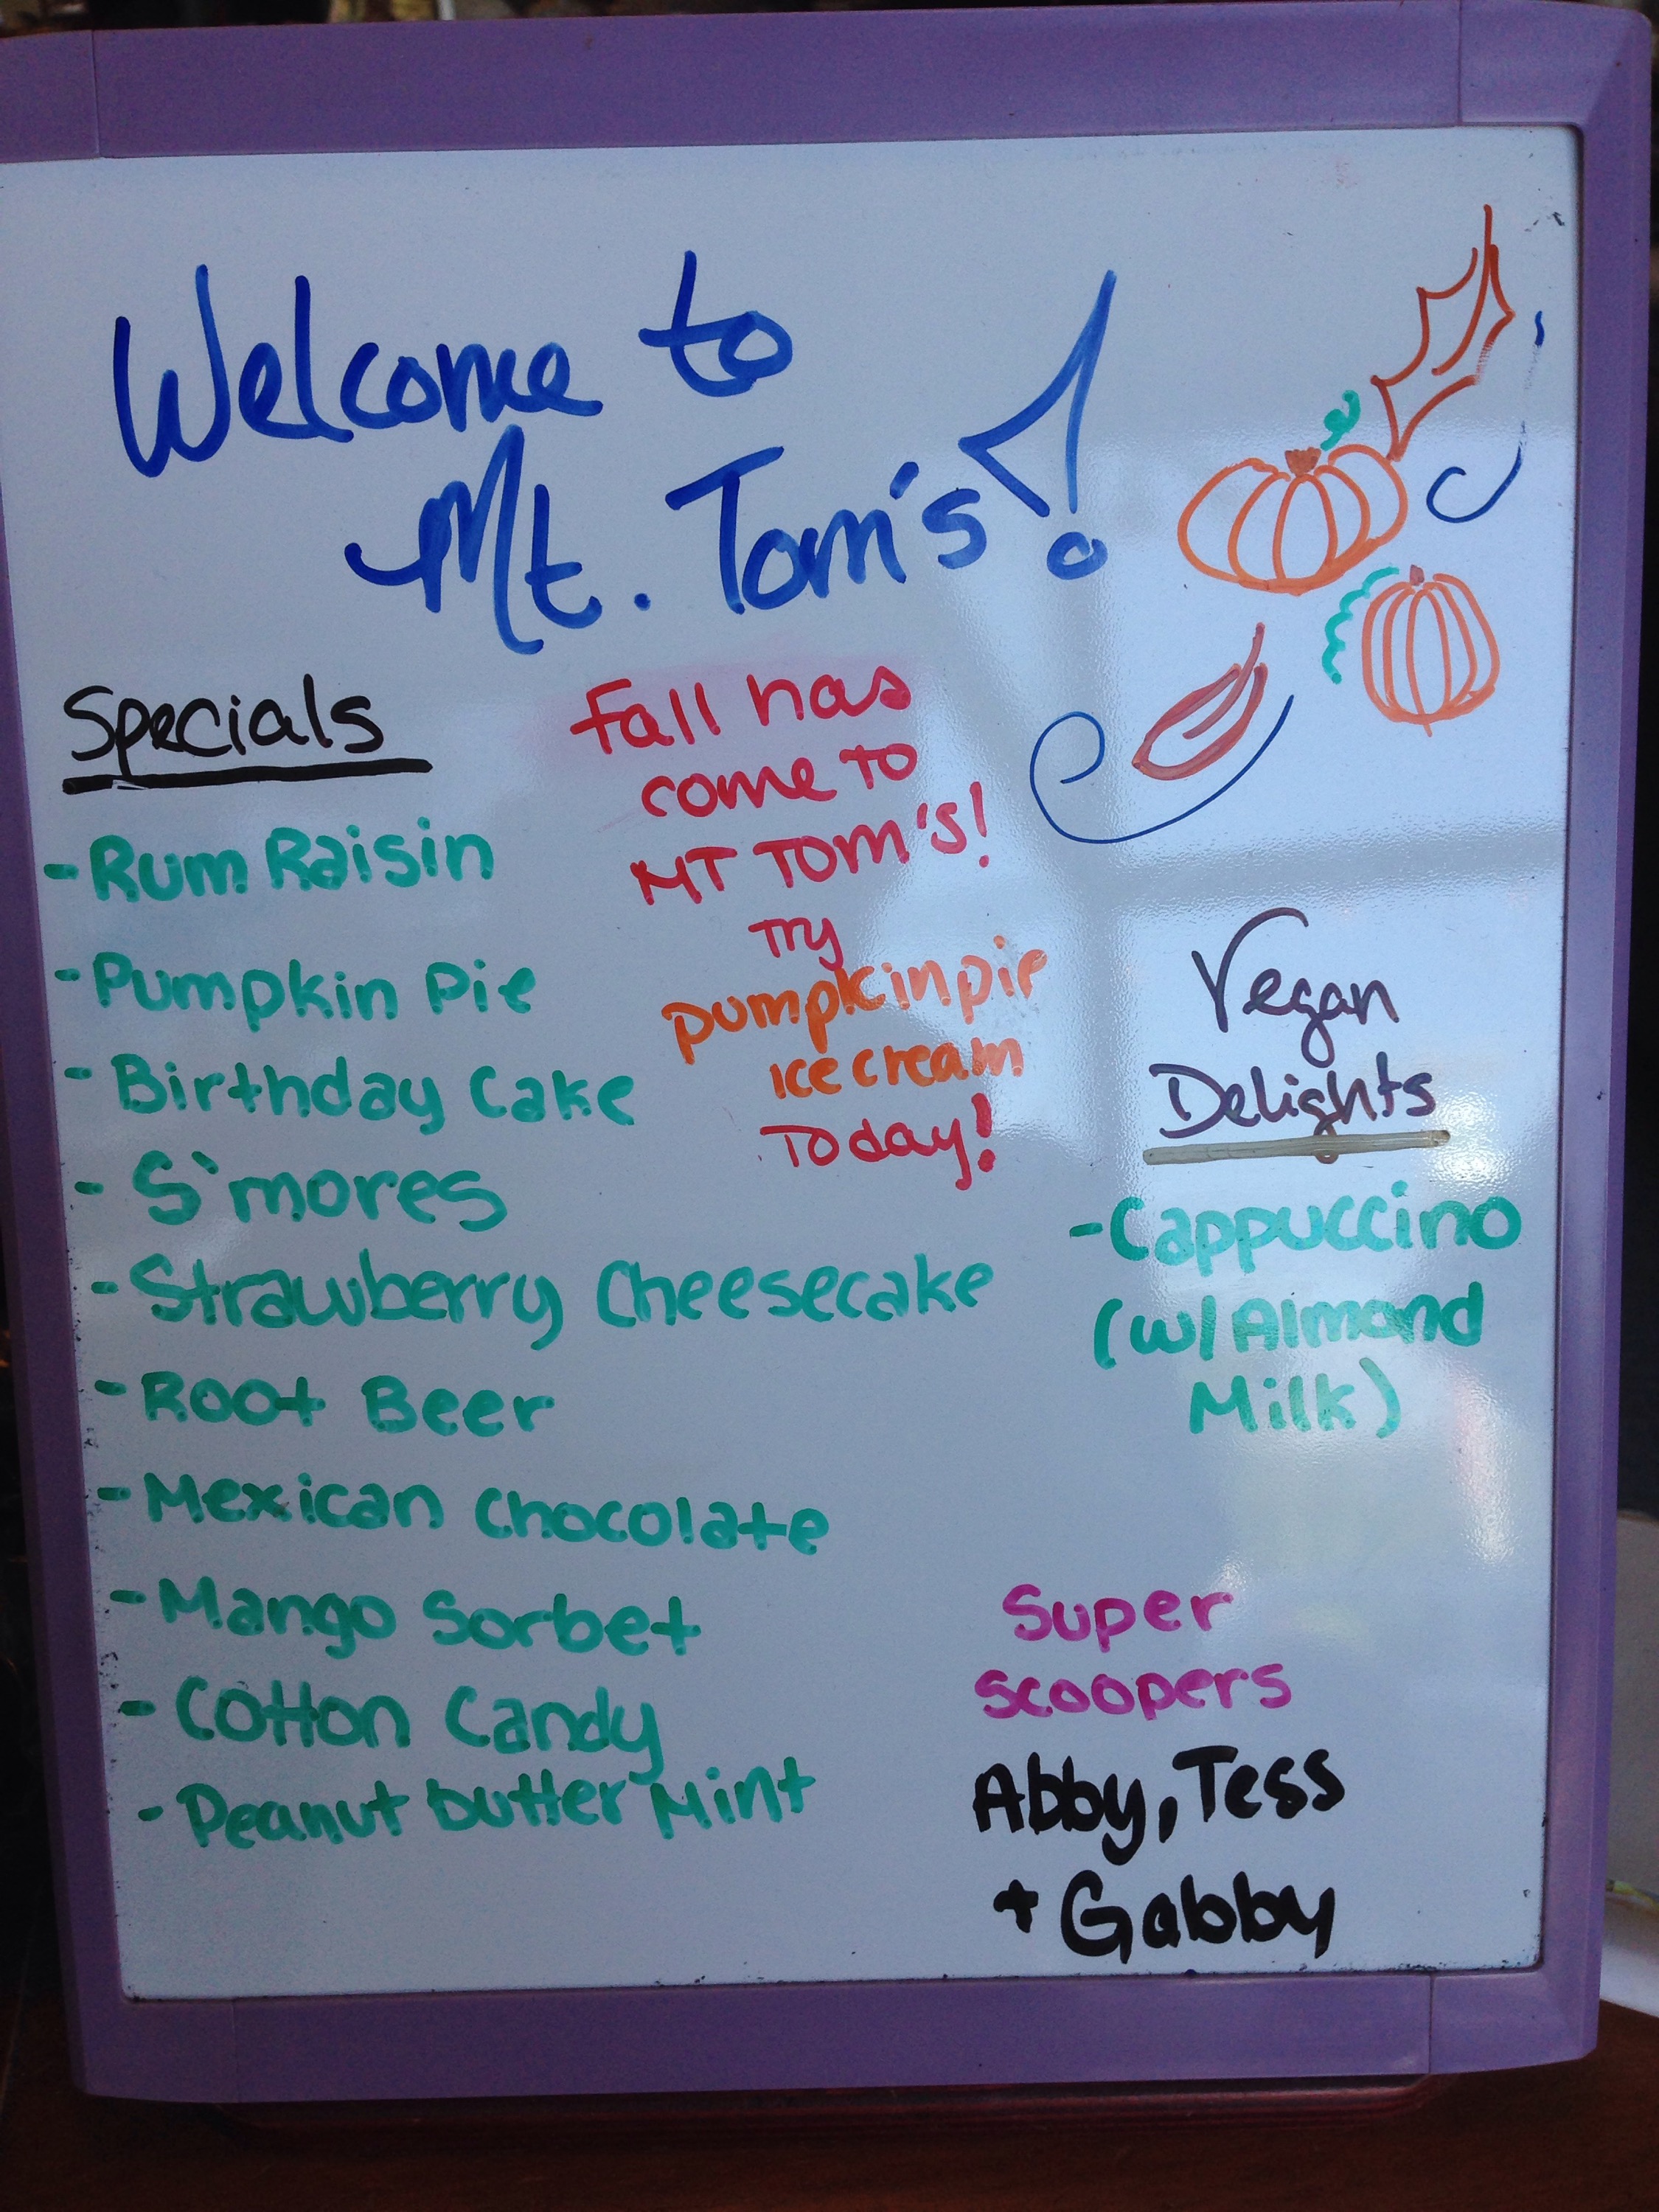 Welcome to
Mt. Tom's!
Specials
- Rum Raisin
- Pumpkin Pie
- Birthday Cake
- S'mores
- Strawberry Cheesecake
- Root Beer
- Mexican Chocolate
- Mango Sorbet
- Cotton Candy
- Peanut butter Mint
Fall has
come to
MT TOM'S!
Try
pumpkin pie
ice cream
Today!
Vegan
Delights
- Cappuccino
(w/ Almond
Milk)
Super
Scoopers
Abby, Tess
+ Gabby